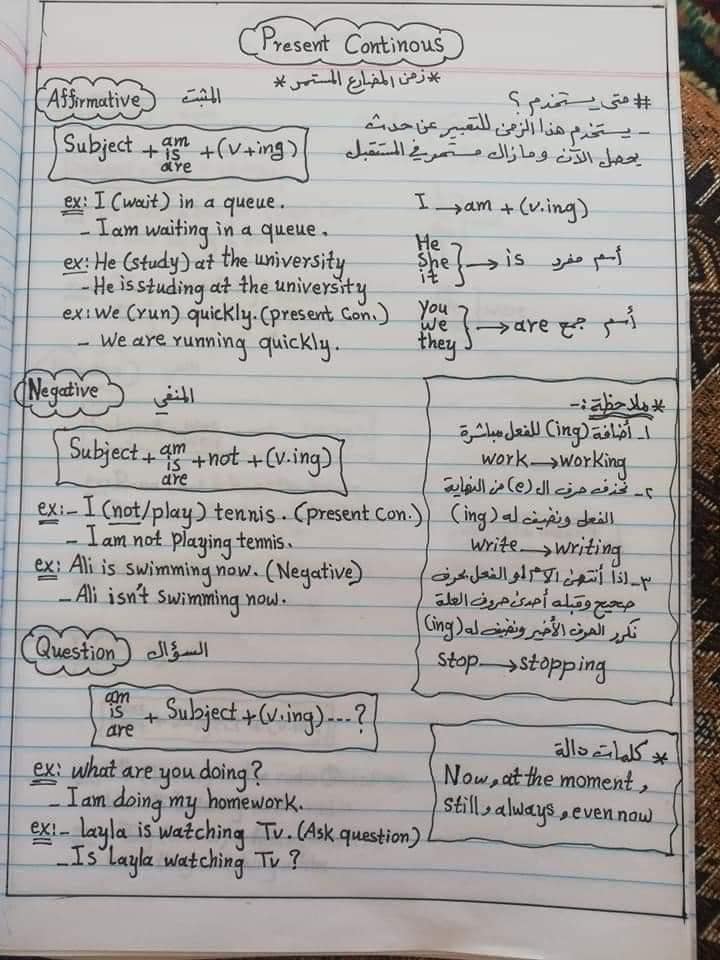 Present Continous
*زمن المضارع المستمر*
Affirmative المثبت
Subject + am is are + (v+ing)
ex: I (wait) in a queue.
- I am waiting in a queue.
ex: He (study) at the university
- He is studing at the university
ex: we (run) quickly. (present con.)
- we are running quickly.
# متى يستخدم ؟
- يستخدم هذا الزمن للتعبير عن حدث
يحصل الآن ومازال مستمر في المستقبل
I → am + (v.ing)
He
She
it
→ is أسم مفرد
you
we
they
→ are أسم جمع
Negative المنفي
Subject + am is are + not + (v.ing)
ex:- I (not/play) tennis. (present con.)
- I am not playing tennis.
ex: Ali is swimming now. (Negative)
- Ali isn't swimming now.
* ملاحظة :-
١- أضافة (ing) للفعل مباشرة
work → working
٢- نحذف حرف ال (e) من النهاية
الفعل ونضيف له (ing)
write → writing
٣- اذا أنتهى الفعل بحرف
صحيح وقبله أحدى حروف العلة
نكرر الحرف الأخير ونضيف له (ing)
stop → stopping
Question السؤال
am is are + Subject + (v.ing) ---- ?
ex: what are you doing?
- I am doing my homework.
ex:- layla is watching Tv. (Ask question)
- Is Layla watching Tv ?
* كلمات دالة
Now, at the moment,
still, always, even now